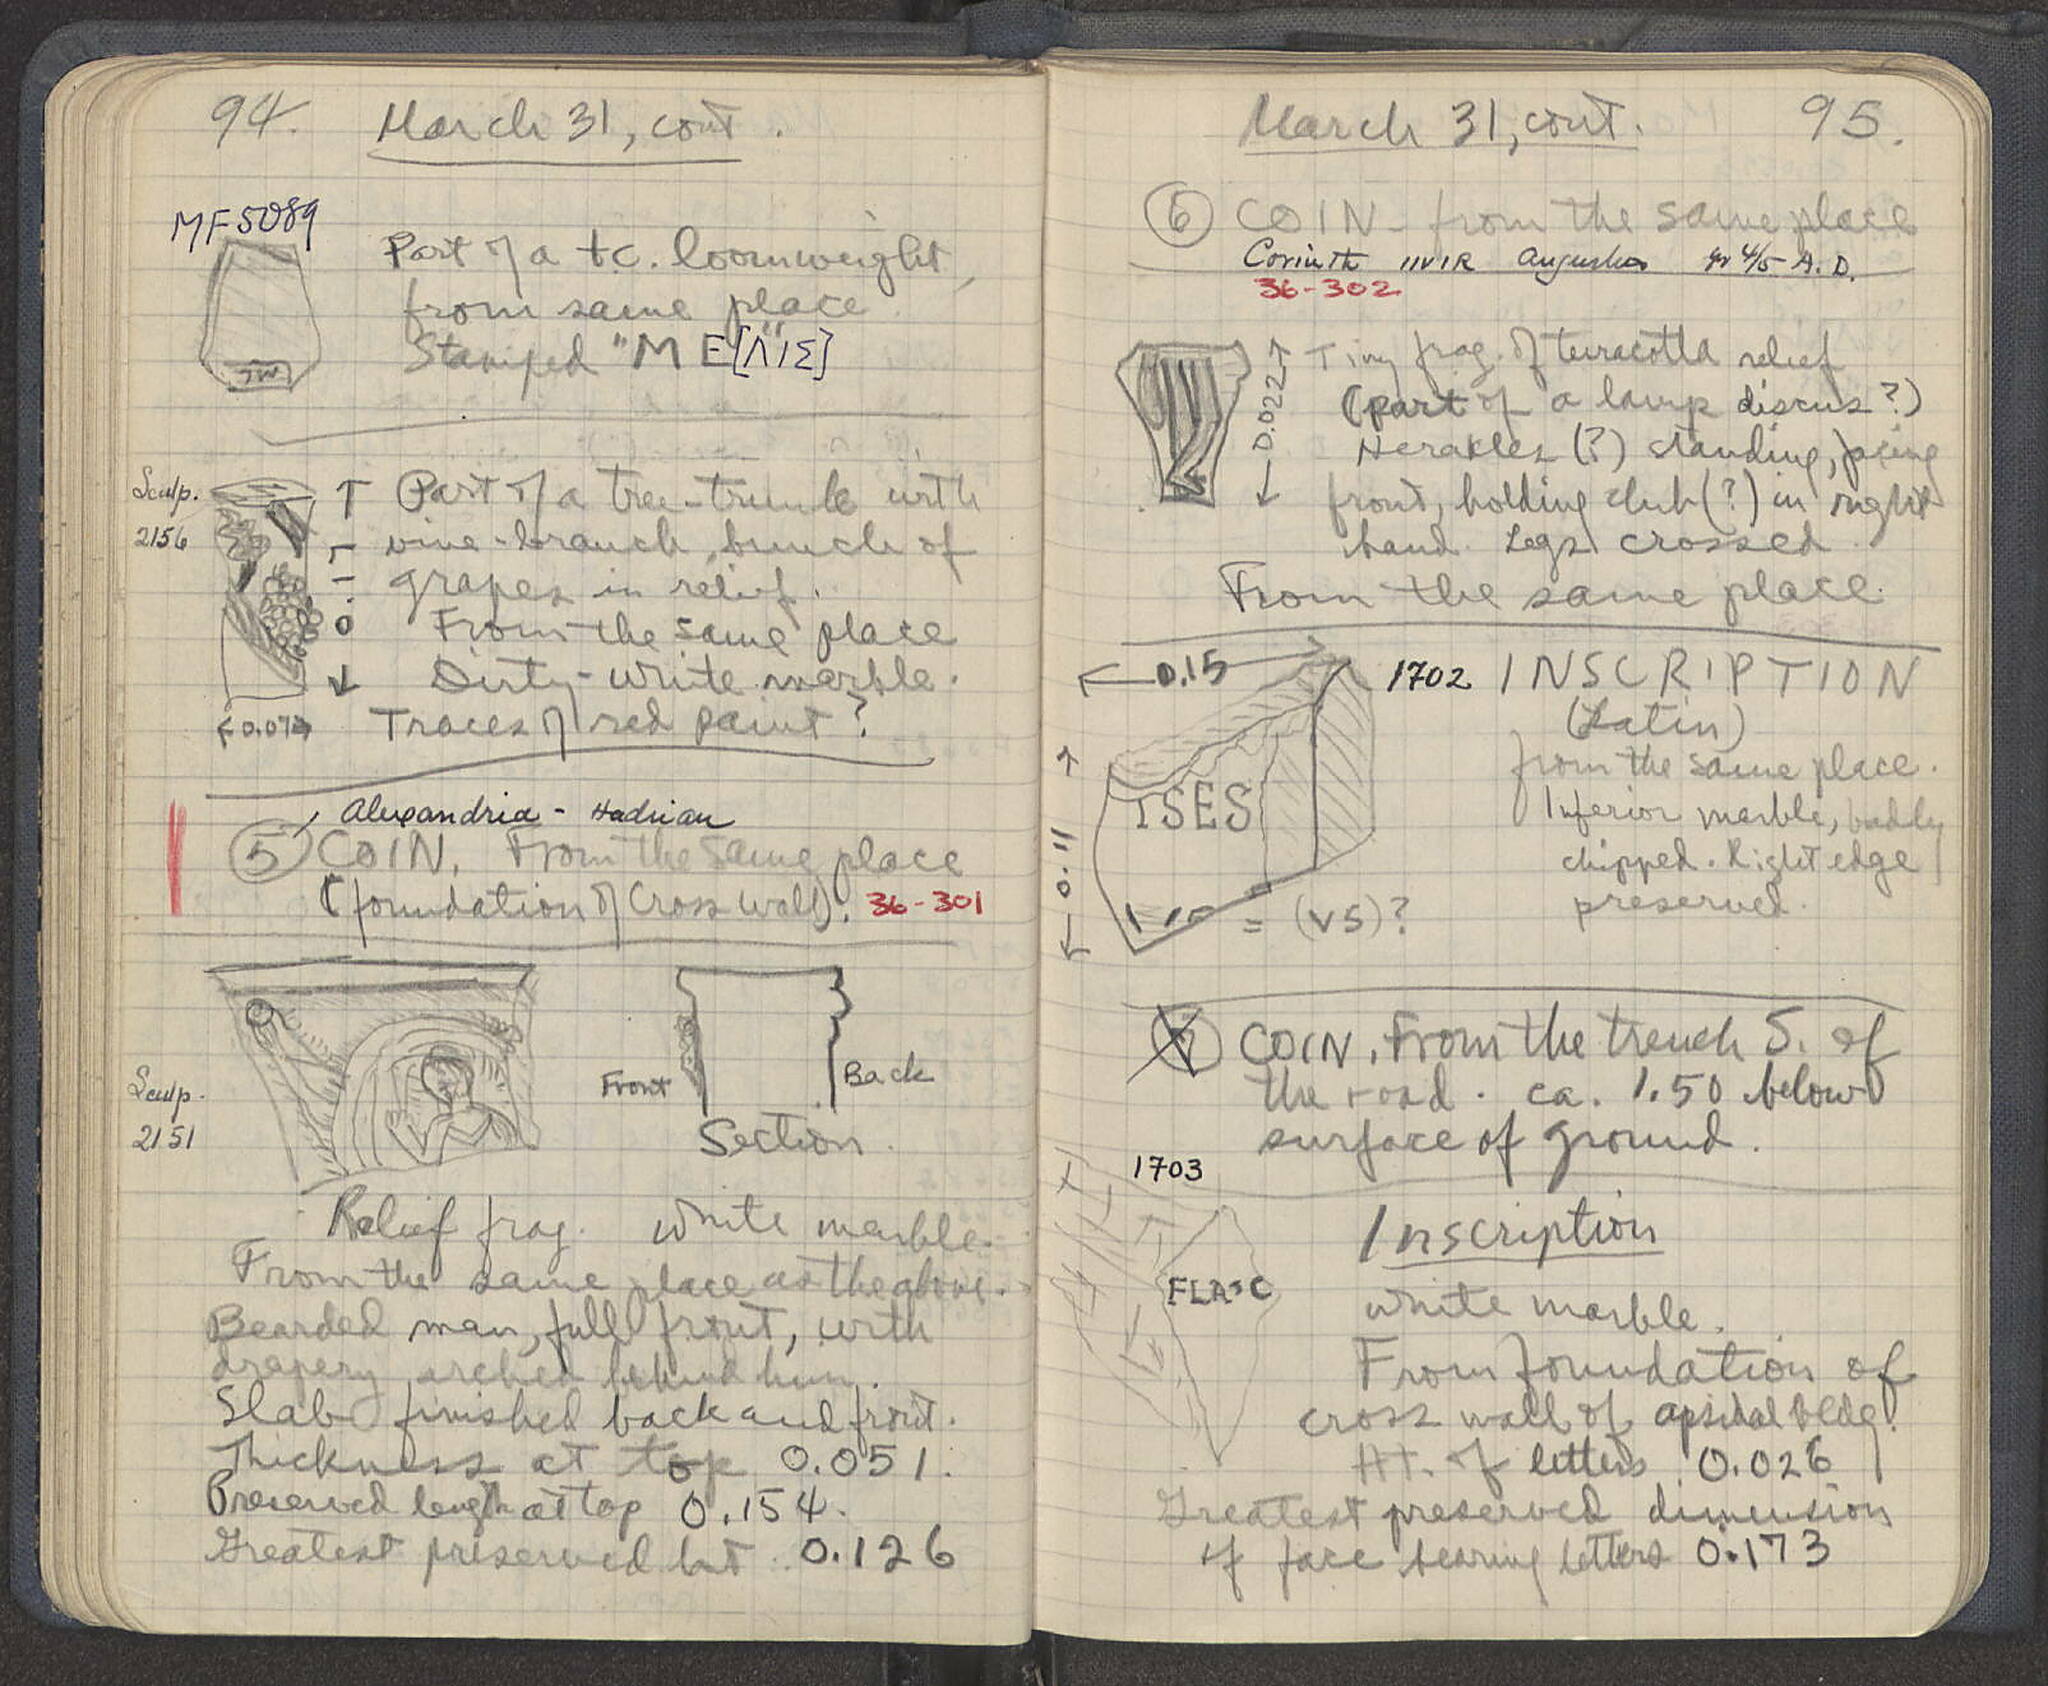 94. March 31, cont.
MF 5089
Part of a t.c. loomweight,
from same place.
Stamped "ME[ΛIΣ]"
Sculp.
2156
Part of a tree-trunk with
vine-branch, bunch of
grapes in relief.
From the same place
Dirty-white marble.
0.07
Traces of red paint?
Alexandria - Hadrian
5 COIN. From the same place
(foundation of Cross wall). 36-301
Sculp.
2151
Front
Back
Section.
Relief frag. White marble.
From the same place as the above.
Bearded man, full front, with
drapery arched behind him.
Slab finished back and front.
Thickness at top 0.051.
Preserved length at top 0.154.
Greatest preserved ht. 0.126
March 31, cont. 95.
6 COIN - from the same place
Corinth IIVIR Augustus 4/5 A.D.
36-302
0.022
Tiny frag. of terracotta relief
(part of a lamp discus?)
Herakles (?) standing, facing
front, holding club (?) in right
hand. Legs crossed.
From the same place.
0.15
1702 INSCRIPTION
(Latin)
from the same place.
Inferior marble, badly
chipped. Right edge
preserved.
ISES
0.11
= (VS)?
7 COIN. From the trench S. of
the road. ca. 1.50 below
surface of ground.
1703
Inscription
FLA·C
White marble.
From foundation of
cross wall of apsidal bldg.
Ht. of letters 0.026
Greatest preserved dimension
of face bearing letters 0.173